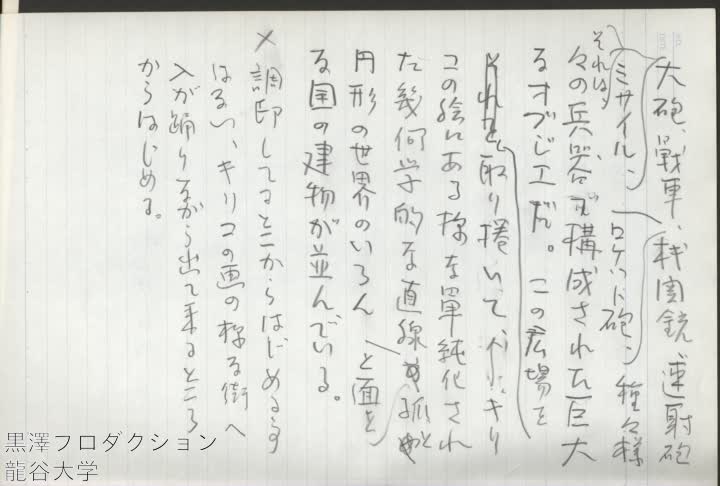 大砲、戦車、機関銃、速射砲
ミサイル、ロケット砲、種々様
それは、
々の兵器で構成された巨大
るオブジェだ。この広場を
それを取り捲いて、キリ
コの絵にある様な単純化され
た幾何学的な直線と弧と
円形の世界のいろん と面を
る国の建物が並んでいる。
× 調印してるところからはじめるす
はるい、キリコの画の様な街へ
人が踊りながら出て来るところ
からはじめる。
黒澤フロダクション
龍谷大学